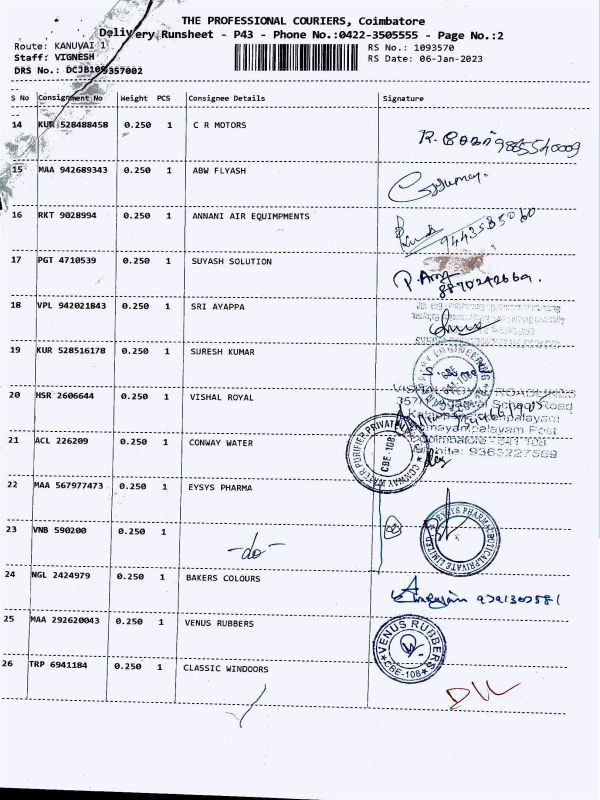 THE PROFESSIONAL COURIERS, Coimbatore
Delivery Runsheet - P43 - Phone No.:0422-3505555 - Page No.:2
Route: KANUVAI 1
RS No.: 1093570
Staff: VIGNESH
RS Date: 06-Jan-2023
DRS No.:
S No Consignment No Weight PCS Consignee Details Signature
14 KUR 528488458 0.250 1 C R MOTORS
15 MAA 942689343 0.250 1 ABW FLYASH
16 RKT 9028994 0.250 1 ANNANI AIR EQUIMPMENTS
17 PGT 4710539 0.250 1 SUYASH SOLUTION
8870242669.
18 VPL 942021843 0.250 1 SRI AYAPPA
19 KUR 528516178 0.250 1 SURESH KUMAR
20 HSR 2606644 0.250 1 VISHAL ROYAL
VISHAL ROYAL ROADLINES
School Road
Coimbatore - 641 108
Mobile: 9363227569
21 ACL 226209 0.250 1 CONWAY WATER
CONWAY WATER PURIFIER PRIVATE LIMITED
22 MAA 567977473 0.250 1 EYSYS PHARMA
EYSYS PHARMACEUTICAL PRIVATE LIMITED
23 VNB 590200 0.250 1 -do-
24 NGL 2424979 0.250 1 BAKERS COLOURS
25 MAA 292620043 0.250 1 VENUS RUBBERS
VENUS RUBBERS
CBE-108
26 TRP 6941184 0.250 1 CLASSIC WINDOORS